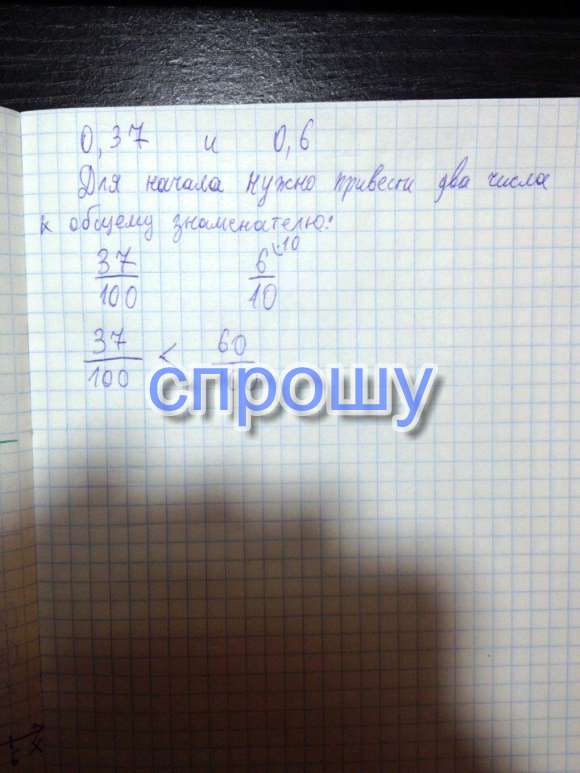 0,37 и 0,6
Для начала нужно привести два числа
к общему знаменателю:
37/100 6/10 \10
37/100 < 60
спрошу